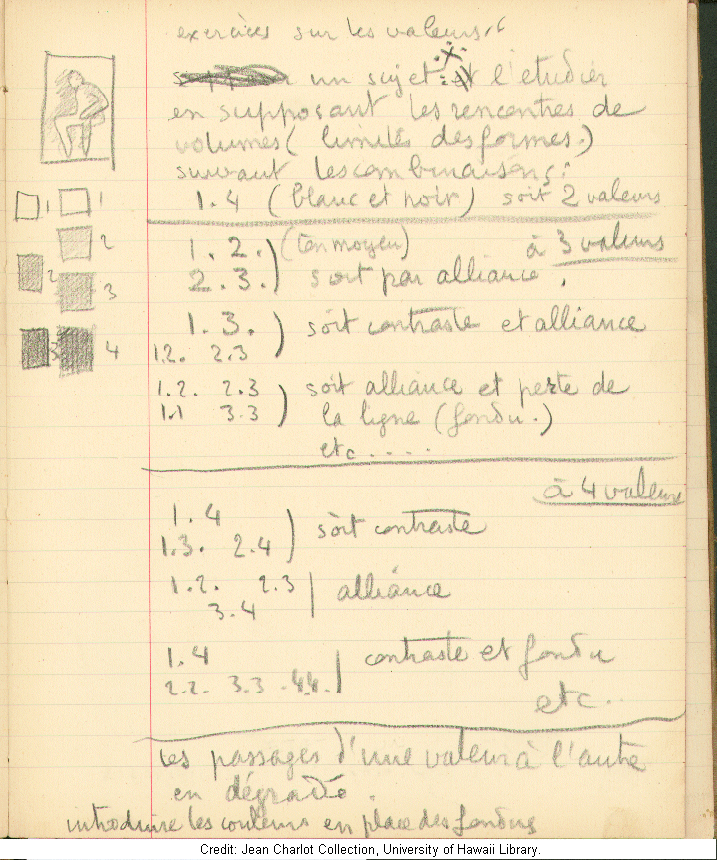 exercices sur les valeurs.
un sujet et l'etudier
en supposant les rencontres de
volumes (limites des formes.)
suivant les combinaisons:
1.4 (blanc et noir) soit 2 valeurs
1.2. (ton moyen) à 3 valeurs
2.3.) soit par alliance.
1.3.) soit contraste et alliance
1.2. 2.3
1.2. 2.3) soit alliance et perte de
1.1 3.3 la ligne (fondu.)
etc.....
à 4 valeurs
1.4
1.3. 2.4) soit contraste
1.2. 2.3 | alliance
3.4
1.4 contraste et fondu
2.2. 3.3 .4.4.
etc..
Les passages d'une valeur à l'autre
en dégradé.
introduire les couleurs en place des fondus
1 1
2
2 3
3 4
Credit: Jean Charlot Collection, University of Hawaii Library.